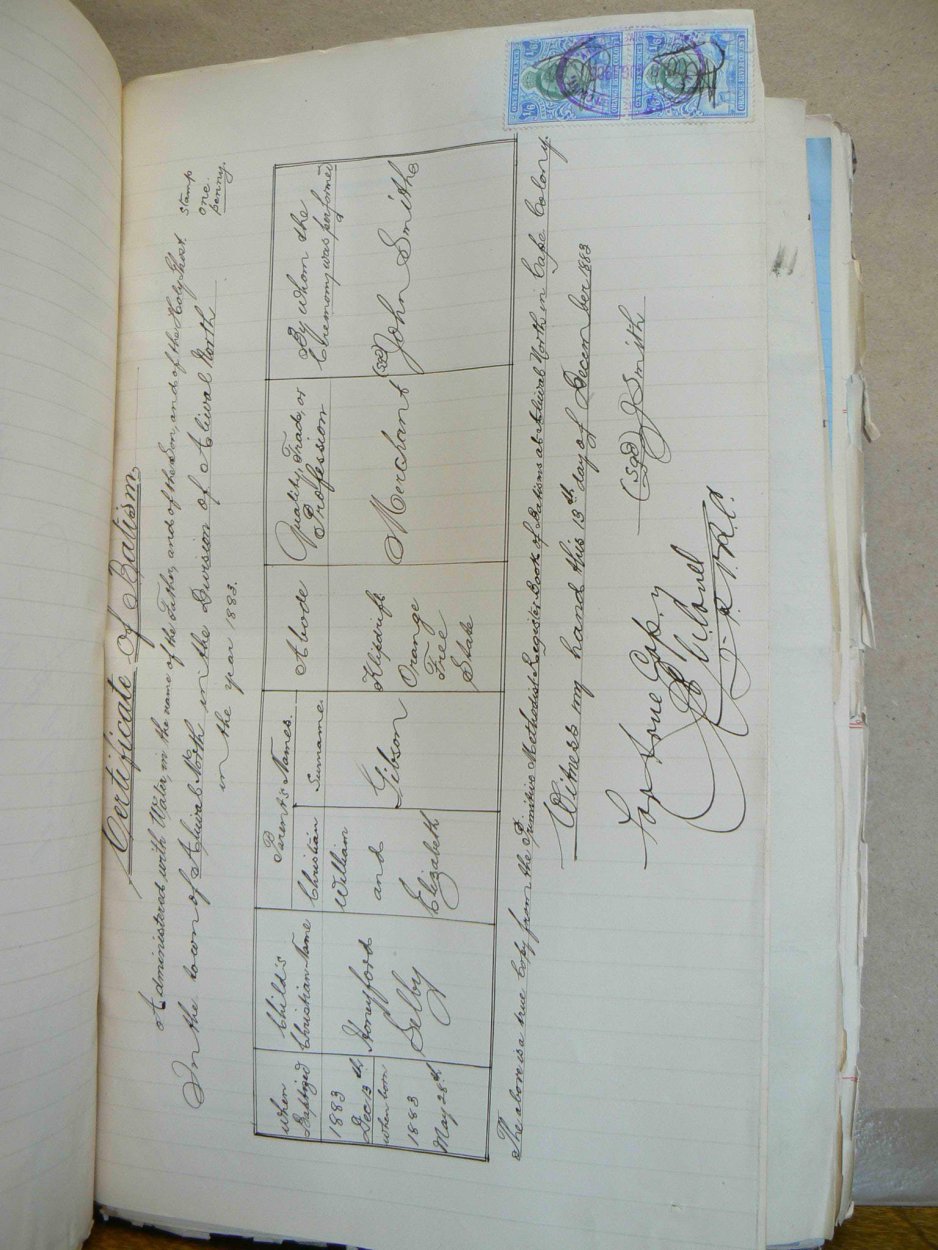 Certificate of Batism
Stamp
one
penny.
Administered with Water, in the name of the Father, and of the Son, and of the Holy Ghost.
In the town of Aliwal North in the Division of Aliwal North
in the year 1883.
When Baptized
Child's Christian Name
Parents Names.
Christian
Surname.
Abode
Quality, Trade, or Profession
By whom the Ceremony was performed
1883
Dec 13th
when born
1883
May 28th
Honeyford
Selby
William
and
Elizabeth
Gibson
Klipdrift
Orange
Free
State
Merchant
(sd) John Smith
The above is a true Copy from the Primitive Methodist Register Book of Batisms at Aliwal North in Cape Colony.
Witness my hand this 13th day of December 1883
(sgd) J Smith
For true Copy